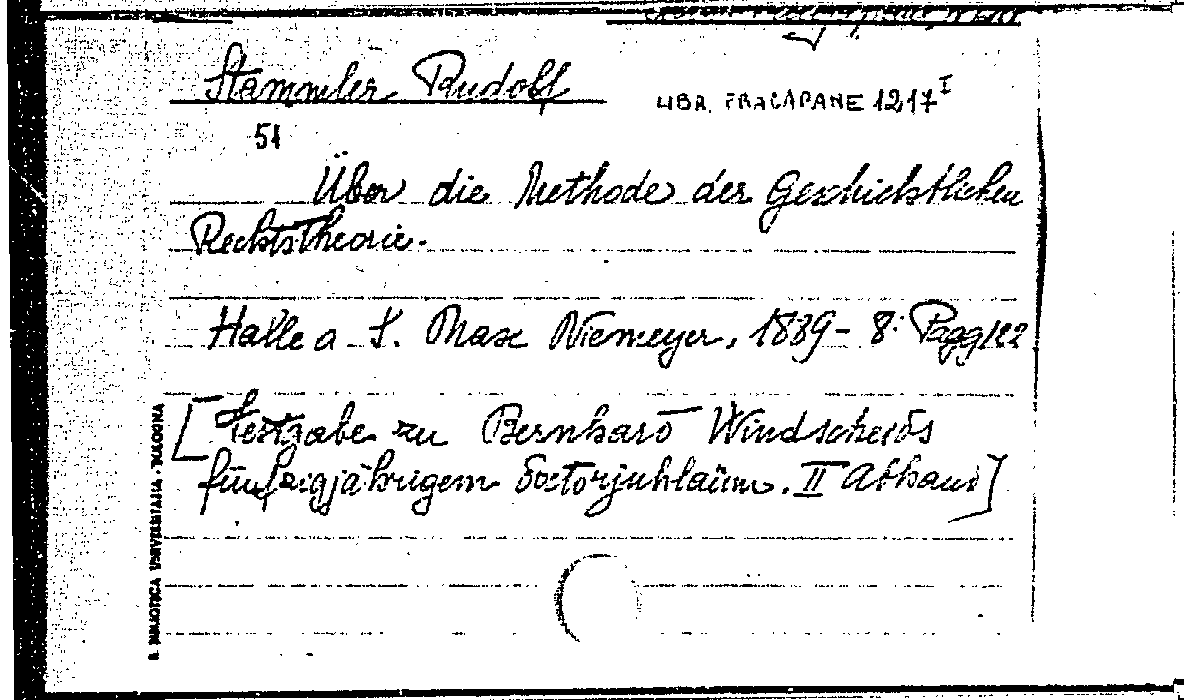 Stammler Rudolf
LIBR. FRACAPANE 1217 I
51
Über die Methode der Geschichtlichen
Rechtstheorie.
Halle a. S. Max Niemeyer, 1889 - 8: Pagg
[Festgabe zu Bernhard Windscheids
fünfzigjährigem Doctorjuhlaüm. II Abhand]
R. BIBLIOTECA UNIVERSITARIA - BOLOGNA